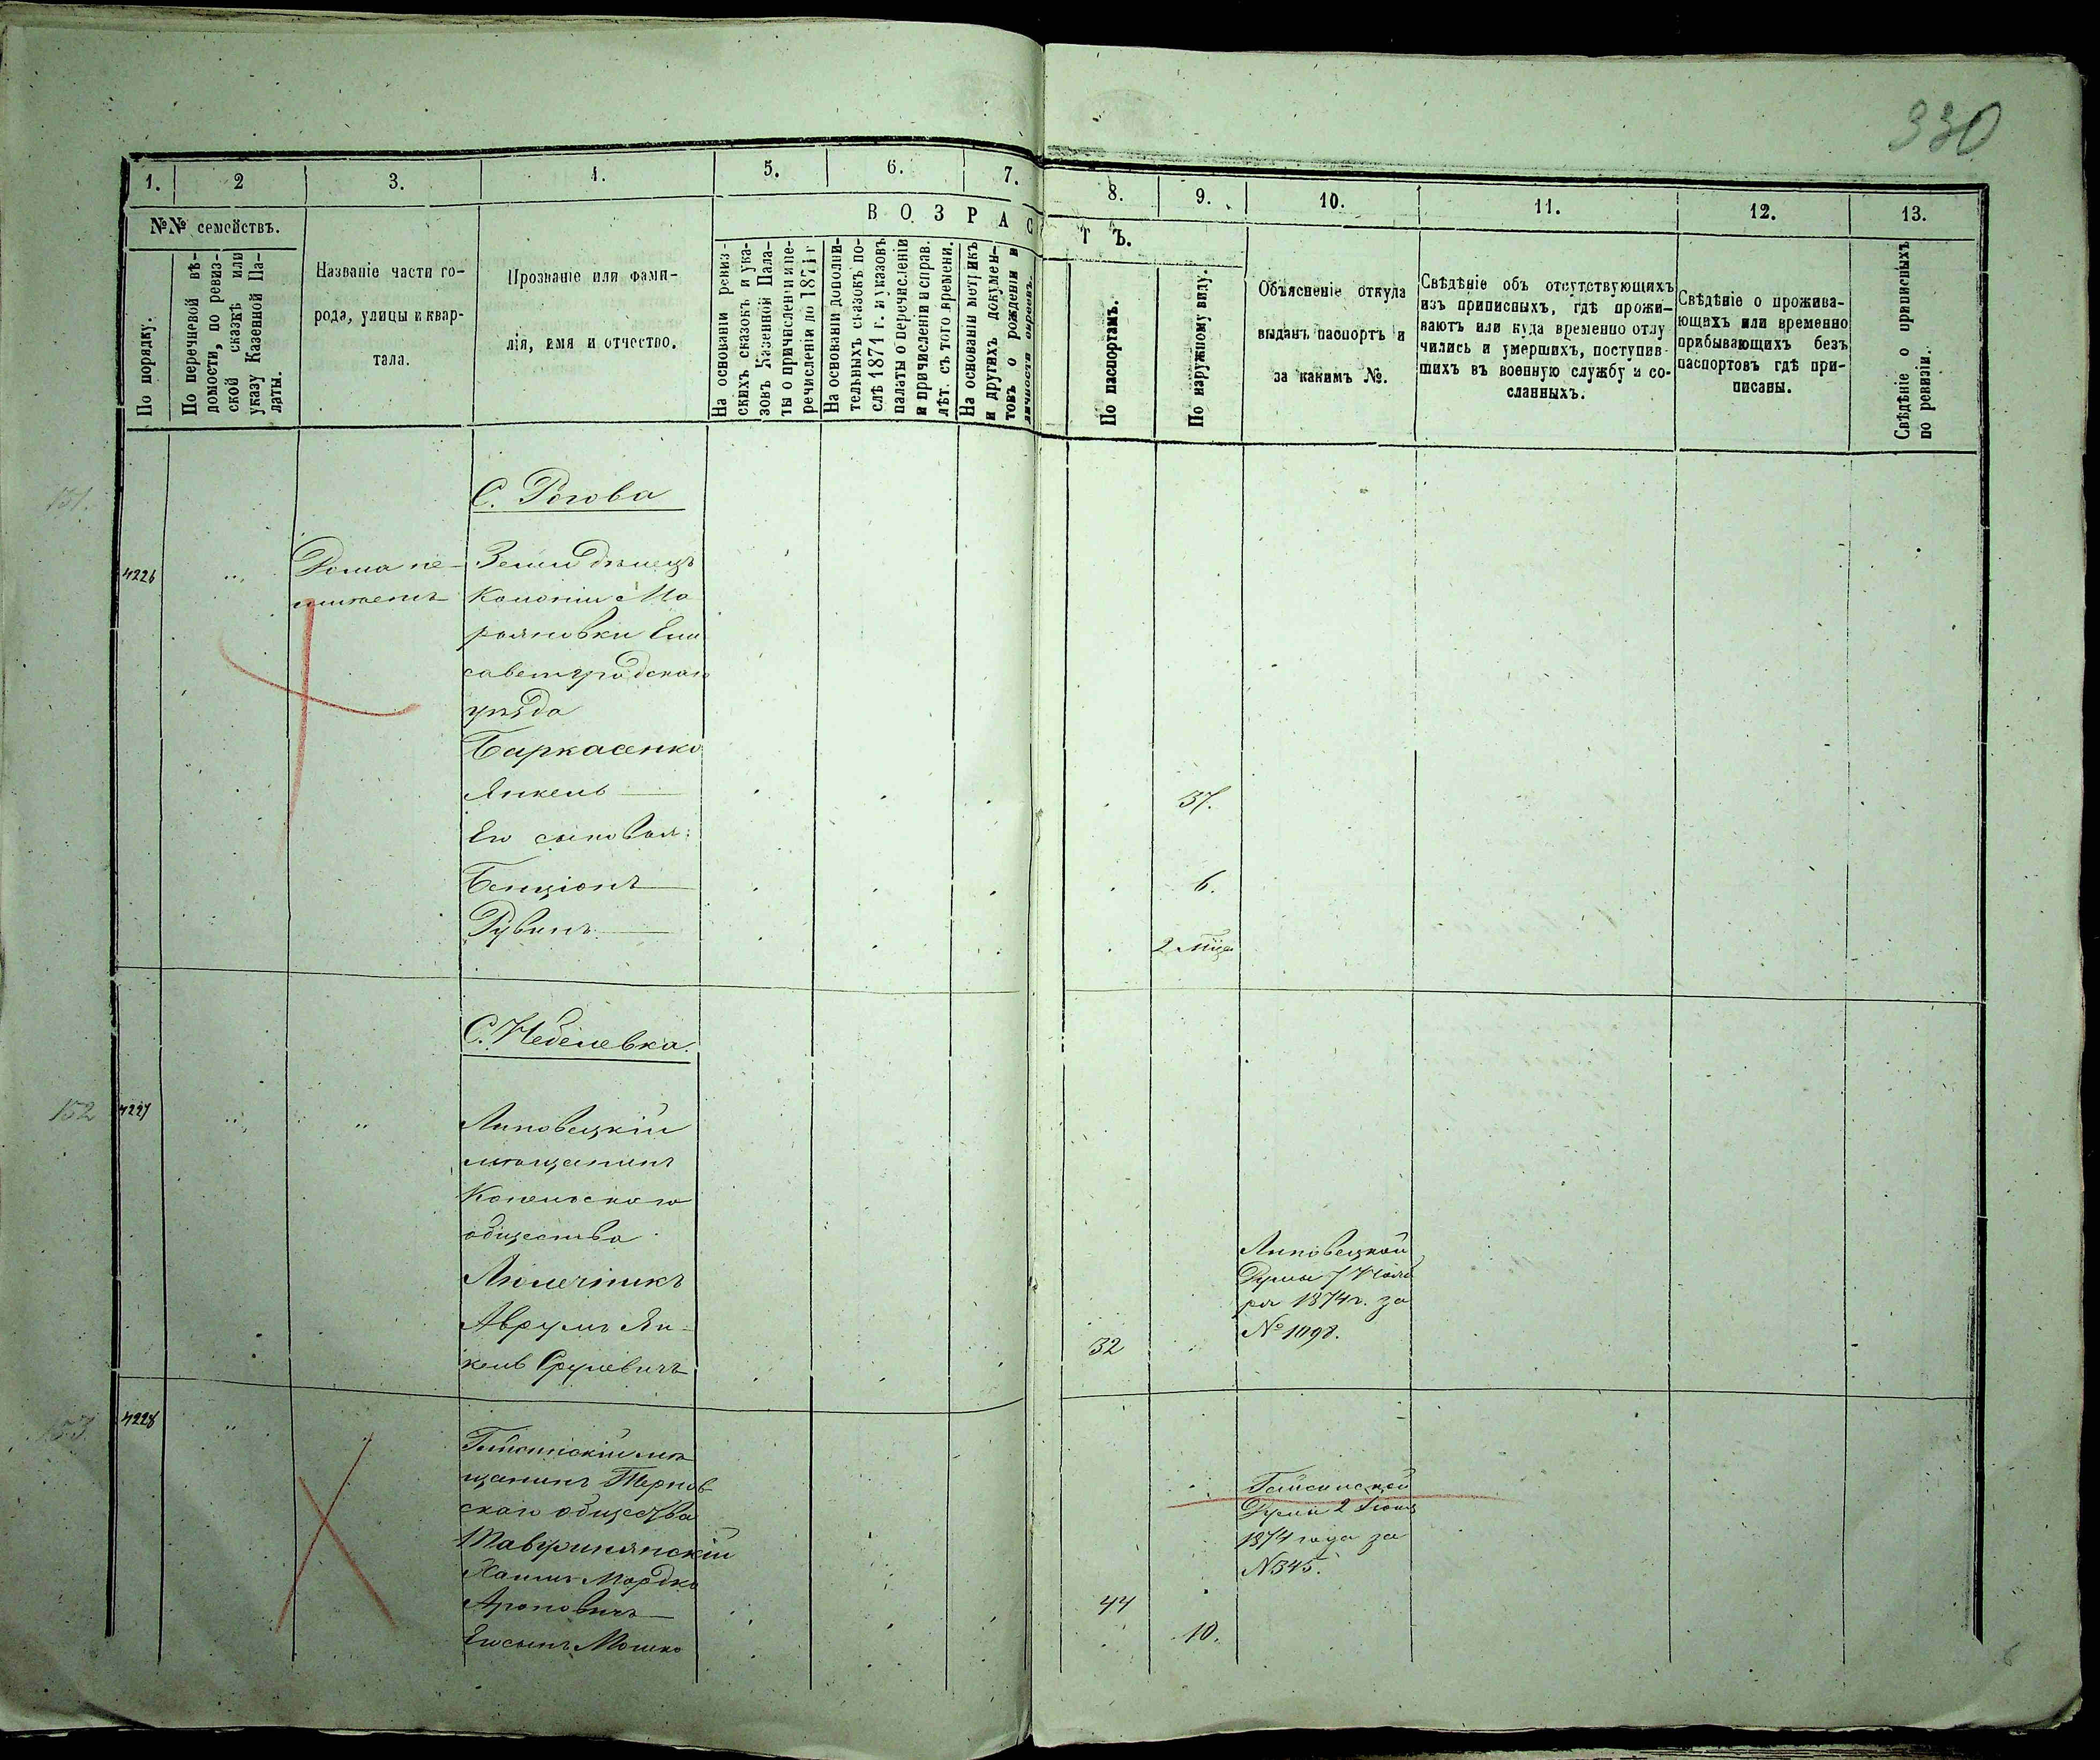 330
1.
2
3.
4.
5.
6.
7.
8.
9.
10.
11.
12.
13.
№№ семействъ.
По порядку.
По перечневой вѣ-
домости, по ревиз-
ской сказкѣ или
указу Казенной Па-
латы.
Названіе части го-
рода, улицы и квар-
тала.
Прозваніе или фами-
лія, имя и отчество.
ВОЗРАСТЪ.
На основаніи ревиз-
скихъ сказокъ и ука-
зовъ Казенной Пала-
ты о причисленіи и пе-
речисленіи до 1871 г
На основаніи дополни-
тельныхъ сказокъ по-
слѣ 1871 г. и указовъ
палаты о перечисленіи
и причисленіи и справ.
лѣт. съ того времени.
На основаніи метрикъ
и другихъ докумен-
товъ о рожденіи и
личности евреевъ.
По паспортамъ.
По наружному виду.
Объясненіе откуда
выданъ паспортъ и
за какимъ №.
Свѣдѣніе объ отсутствующихъ
изъ приписныхъ, гдѣ прожи-
ваютъ или куда временно отлу
чились и умершихъ, поступив-
шихъ въ военную службу и со-
сланныхъ.
Свѣдѣніе о прожива-
ющихъ или временно
прибывающихъ безъ
паспортовъ гдѣ при-
писаны.
Свѣдѣніе о приписныхъ
по ревизіи.
131.
С. Рогова
4226
Дома не-
имеетъ
Земледѣлецъ
Колоніи Ма
рьяновки Ели
саветградскаго
уѣзда
Баркасенко
Янкель
37.
Его сыновья:
Бенціонъ
6.
Рувинъ
2 мца
С. Небелевка.
152
4227
Липовецкій
мѣщанинъ
Копельского
общества
Люлечникъ
Аврумъ Ян-
кель Сруловичъ
32
Липовецкой
Думы 7 Нояб
ря 1874 г. за
№ 1098.
153
4228
Гайсинскій мѣ
щанинъ Тернов
скаго общества
Хаимъ Мордко
Ароновичъ
44
Его сынъ Мошко
10.
Гайсинской
Думы 2 Іюня
1874 года за
№345.